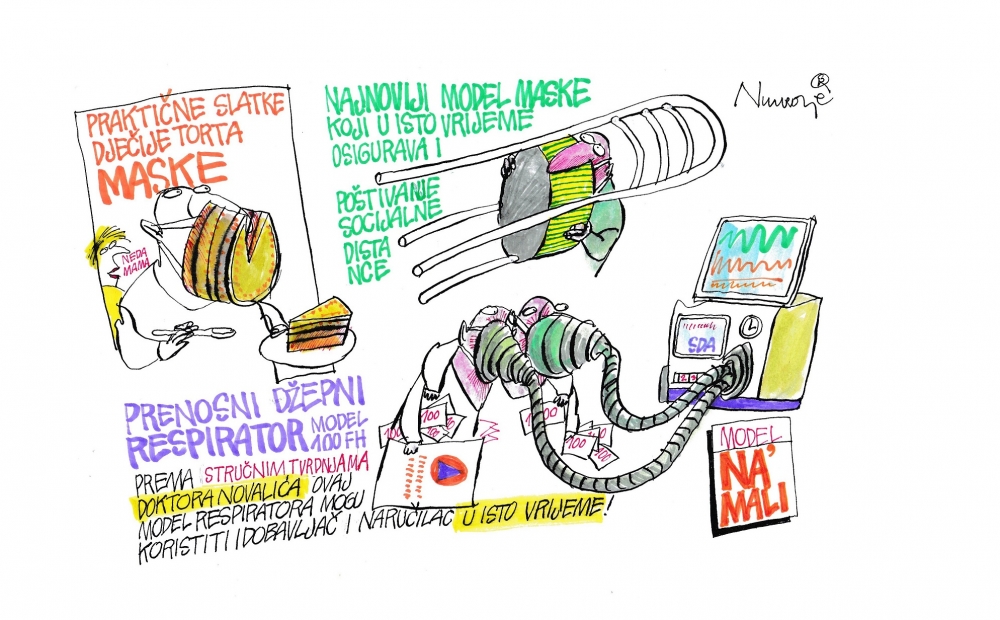 PRAKTIČNE SLATKE
DJEČIJE TORTA
MASKE
NEDA
MAMA
NAJNOVIJI MODEL MASKE
KOJI U ISTO VRIJEME
OSIGURAVA I
POŠTIVANJE
SOCIJALNE
DISTA
NCE
SDA
PRENOSNI DŽEPNI
RESPIRATOR MODEL
100 FH
PREMA STRUČNIM TVRDNJAMA
DOKTORA NOVALIĆA OVAJ
MODEL RESPIRATORA MOGU
KORISTITI I DOBAVLJAČ I NARUČILAC U ISTO VRIJEME!
100
100
100
100
100
MODEL
NA'
MALI